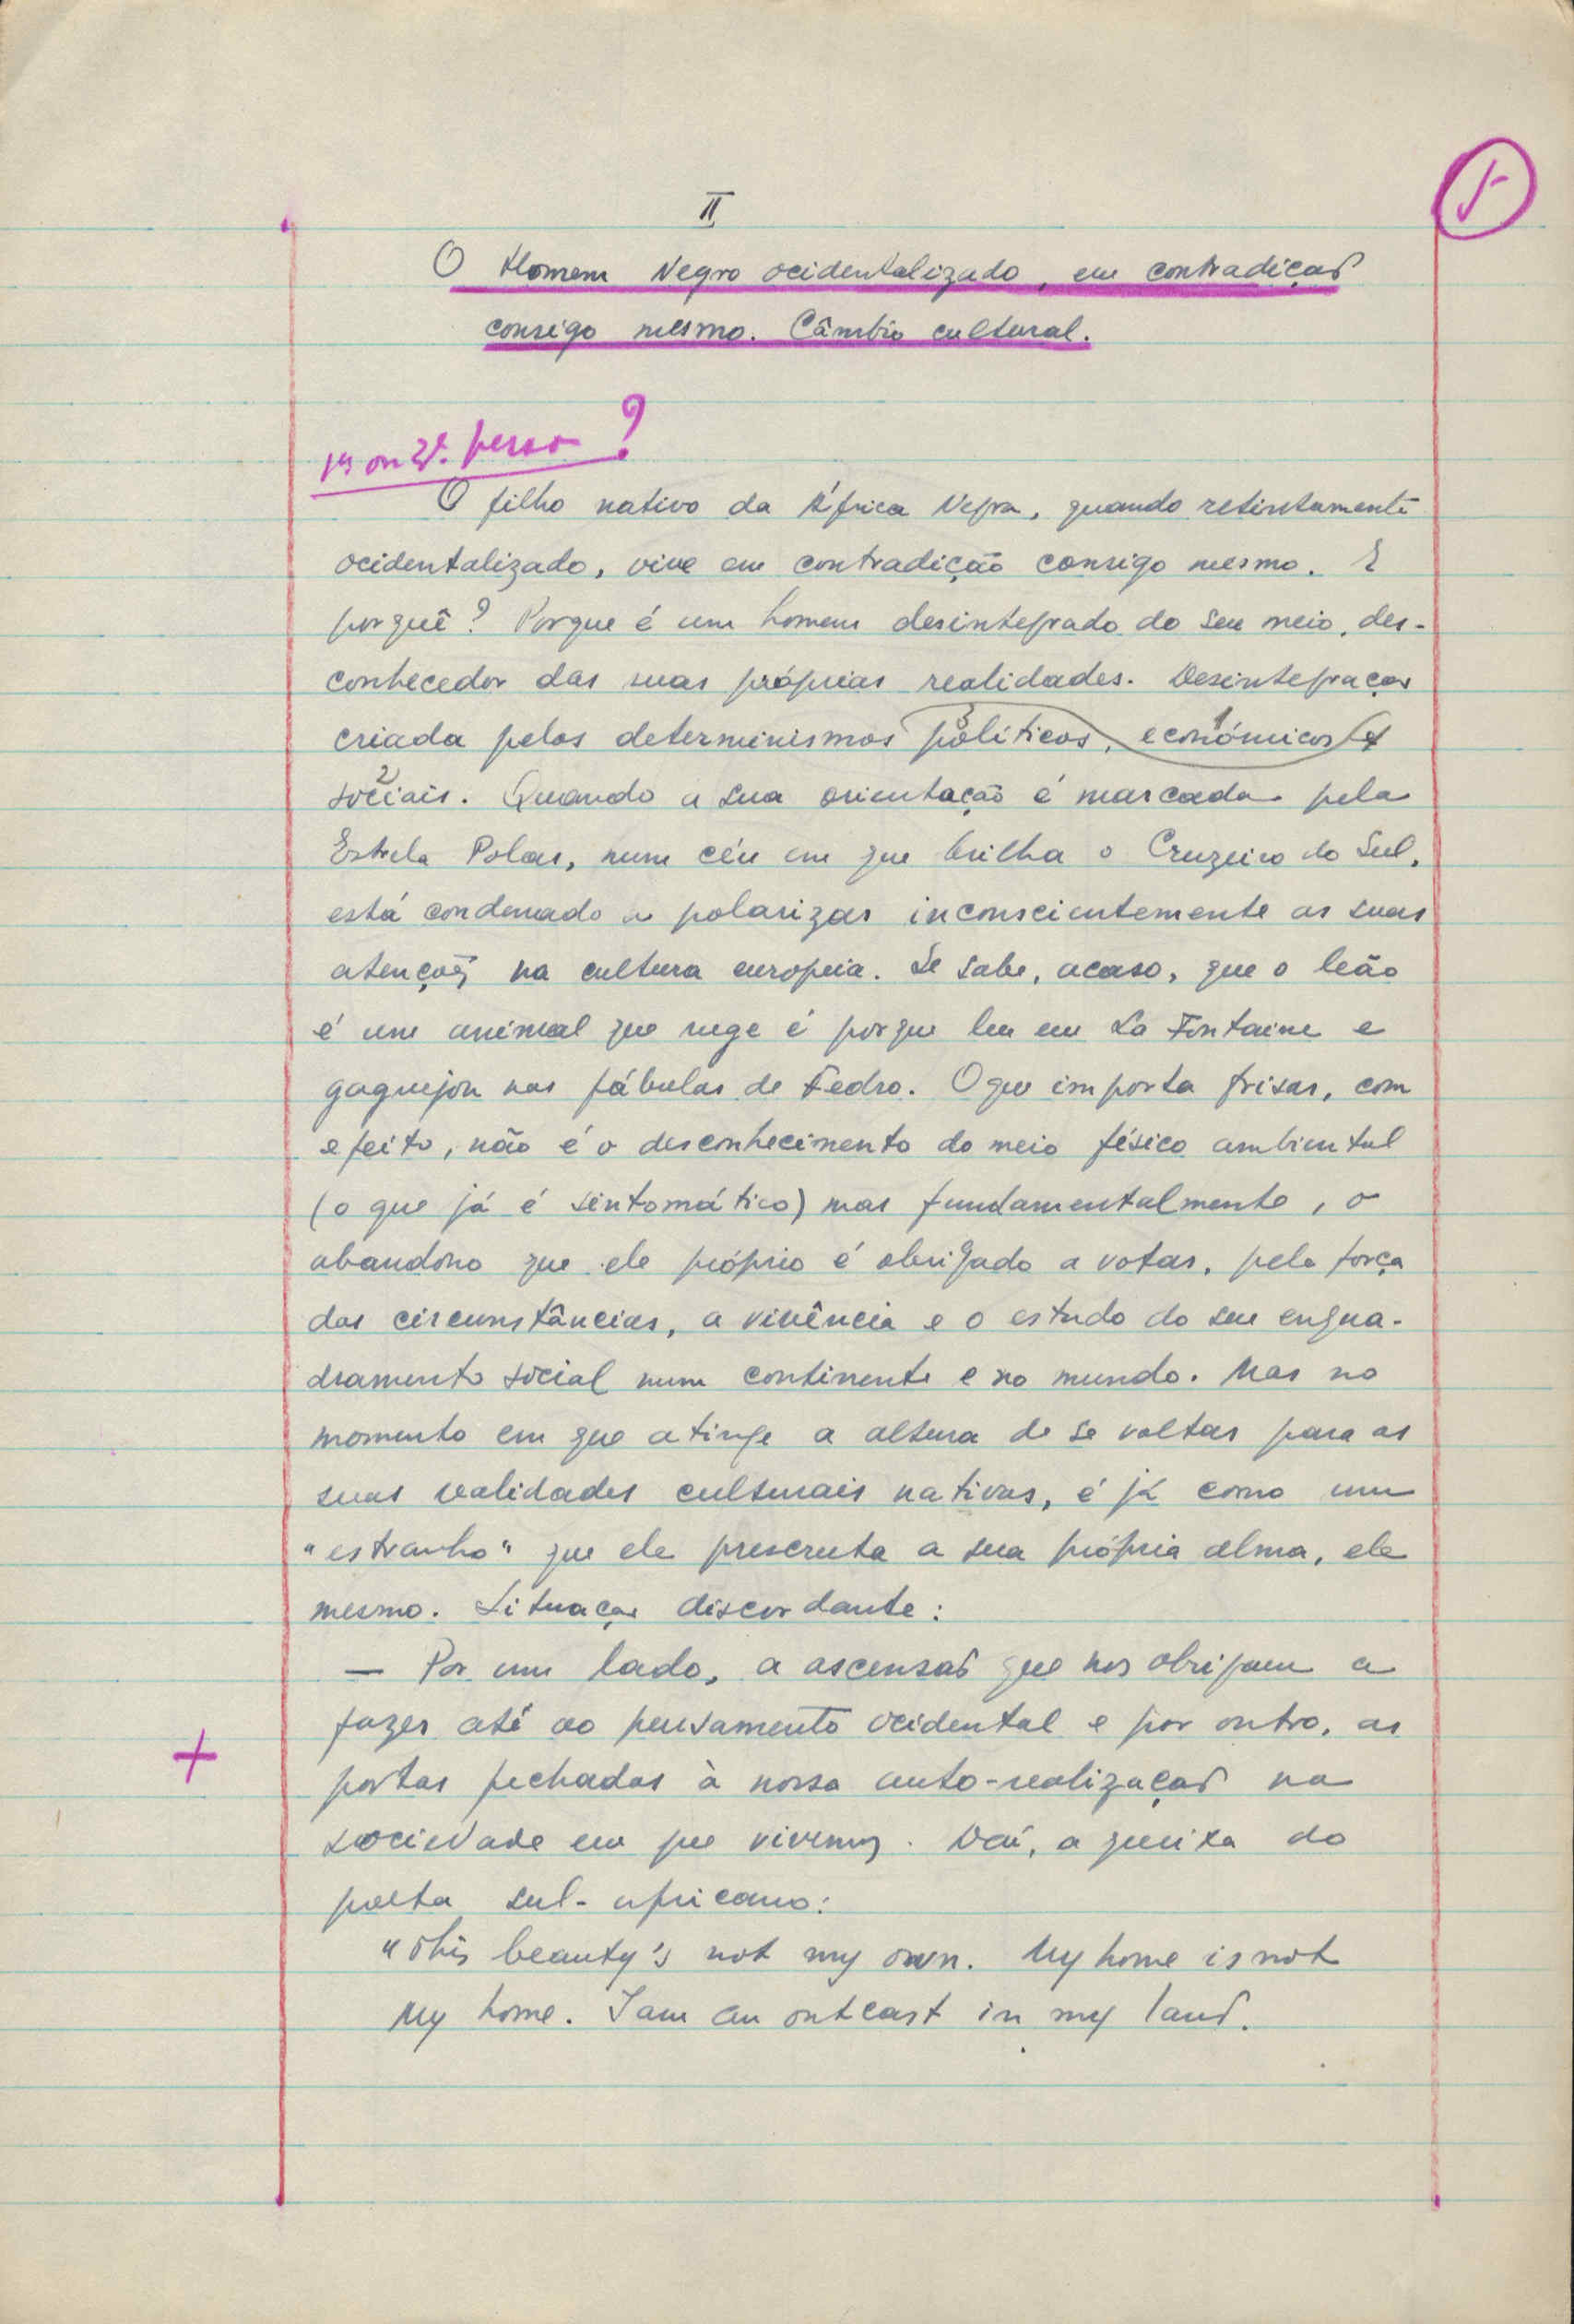 5
II
O Homem Negro ocidentalizado, em contradição
consigo mesmo. Câmbio cultural.
1ª ou 3ª. pessoa?
O filho nativo da África Negra, quando retintamente
ocidentalizado, vive em contradição consigo mesmo. E
porquê? Porque é um homem desintegrado do seu meio, des-
conhecedor das suas próprias realidades. Desintegração
criada pelos determinismos políticos, económicos e
3 1
sociais. Quando a sua orientação é marcada pela
2
Estrela Polar, num céu em que brilha o Cruzeiro do Sul,
está condenado a polarizar inconscientemente as suas
atenções na cultura europeia. Se sabe, acaso, que o leão
é um animal que ruge é porque leu em La Fontaine e
gaguejou nas fábulas de Fedro. O que importa frisar, com
efeito, não é o desconhecimento do meio físico ambiental
(o que já é sintomático) mas fundamentalmente, o
abandono que ele próprio é obrigado a votar, pela força
das circunstâncias, a vivência e o estudo do seu enqua-
dramento social num continente e no mundo. Mas no
momento em que atinge a altura de se voltar para as
suas realidades culturais nativas, é já como um
"estranho" que ele prescruta a sua própria alma, ele
mesmo. Situação discordante:
— Por um lado, a ascensão que nos obrigam a
fazer até ao pensamento ocidental e por outro, as
+
portas fechadas à nossa auto-realização na
sociedade em que vivemos. Daí, a queixa do
poeta sul-africano:
"This beauty's not my own. My home is not
My home. I am an outcast in my land.